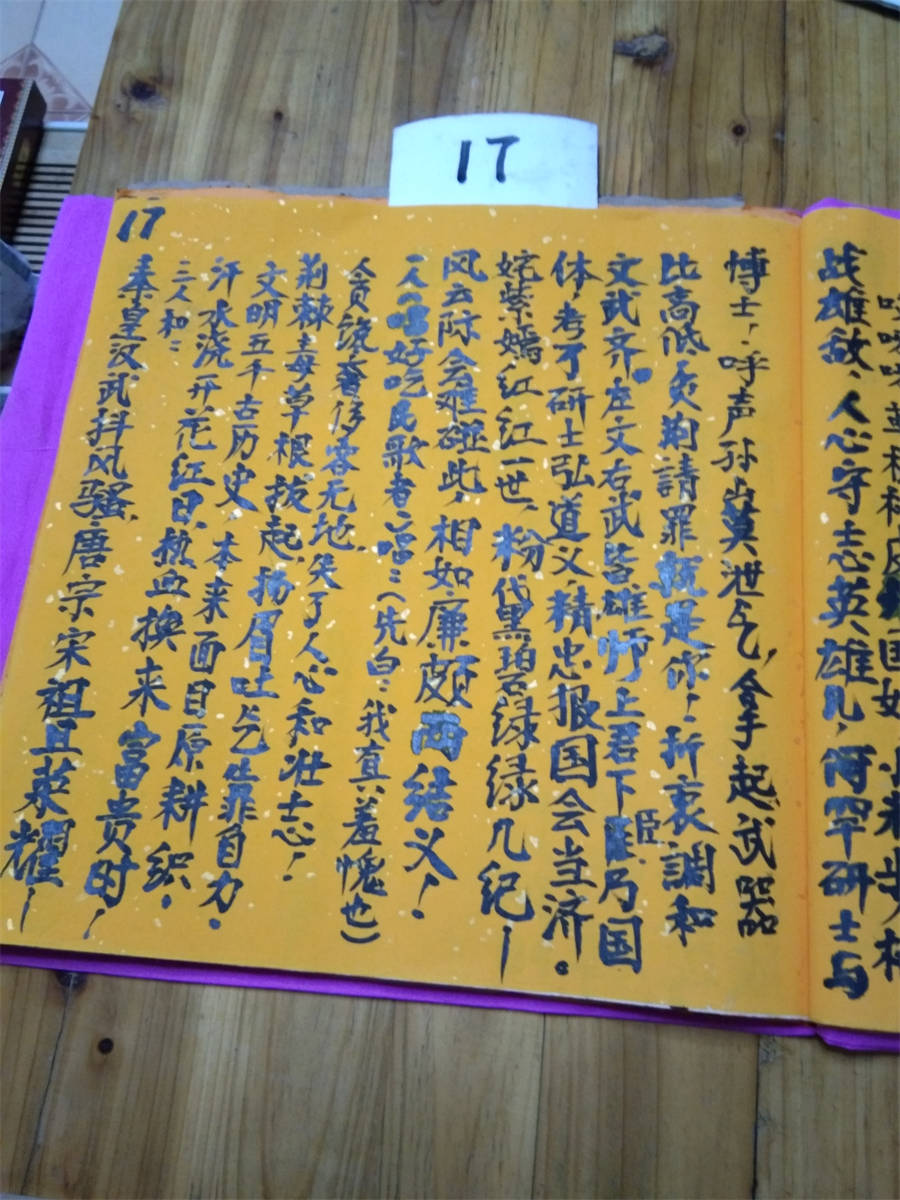 17
17
战雄敌、人心守志英雄儿，何罕研士与
博士！呼声孙山莫泄气，拿起武器
比高低！负荆請罪就是你！折衷調和
文武齐。左文右武皆雄师，上君下臣乃国
体，考了研士弘道义，精忠报国会当济。
姹紫嫣红红一世，粉黛黑碧绿绿几纪！
风云际会难碰此，相如廉颇两结义！
(先白：我真羞愧也)
贪婪奢侈客无地，失了人心和壮志！
荊棘毒草根拔起，扬眉吐气靠自力。
文明五千古历史，本来面目原耕织。
汗水浇开花红日，热血换来富贵时！
三人和：
秦皇汉武抖风骚，唐宗宋祖且荣耀！